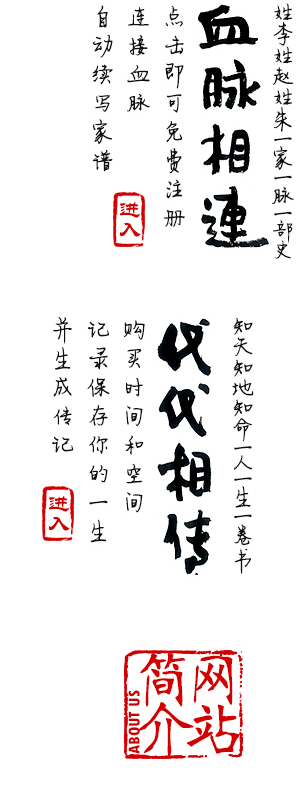 姓李姓赵姓朱一家一脉一部史
血脉相連
点击即可免费注册
连接血脉
自动续写家谱
进入
知天知地知命一人一生一卷书
代代相传
购买时间和空间
记录保存你的一生
并生成传记
进入
网站
简介
ABOUT US